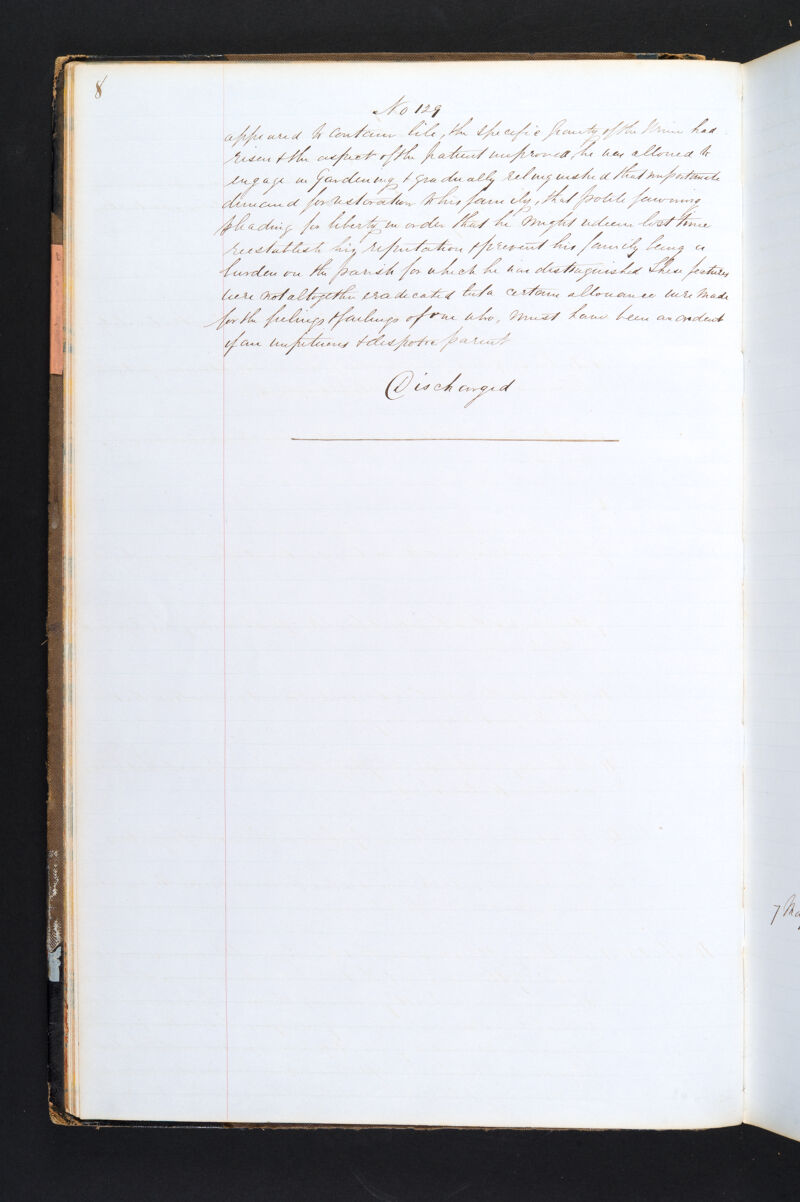 8
No 129
appeared to contain bile, the specific gravity of the Urine had
risen & the aspect of the patient improved, he was allowed to
engage in Gardening & gradually relinquished that importunate
demand for restoration to his family, that polite fawning
pleading for liberty in order that he might redeem lost time
reestablish his reputation & prevent his family being a
burden on the parish for which he was distinguished These features
were not altogether eradicated but a certain allowance were made
for the feelings & failings of one who, must have been an
of an impetuous & despotic parent
Discharged
7